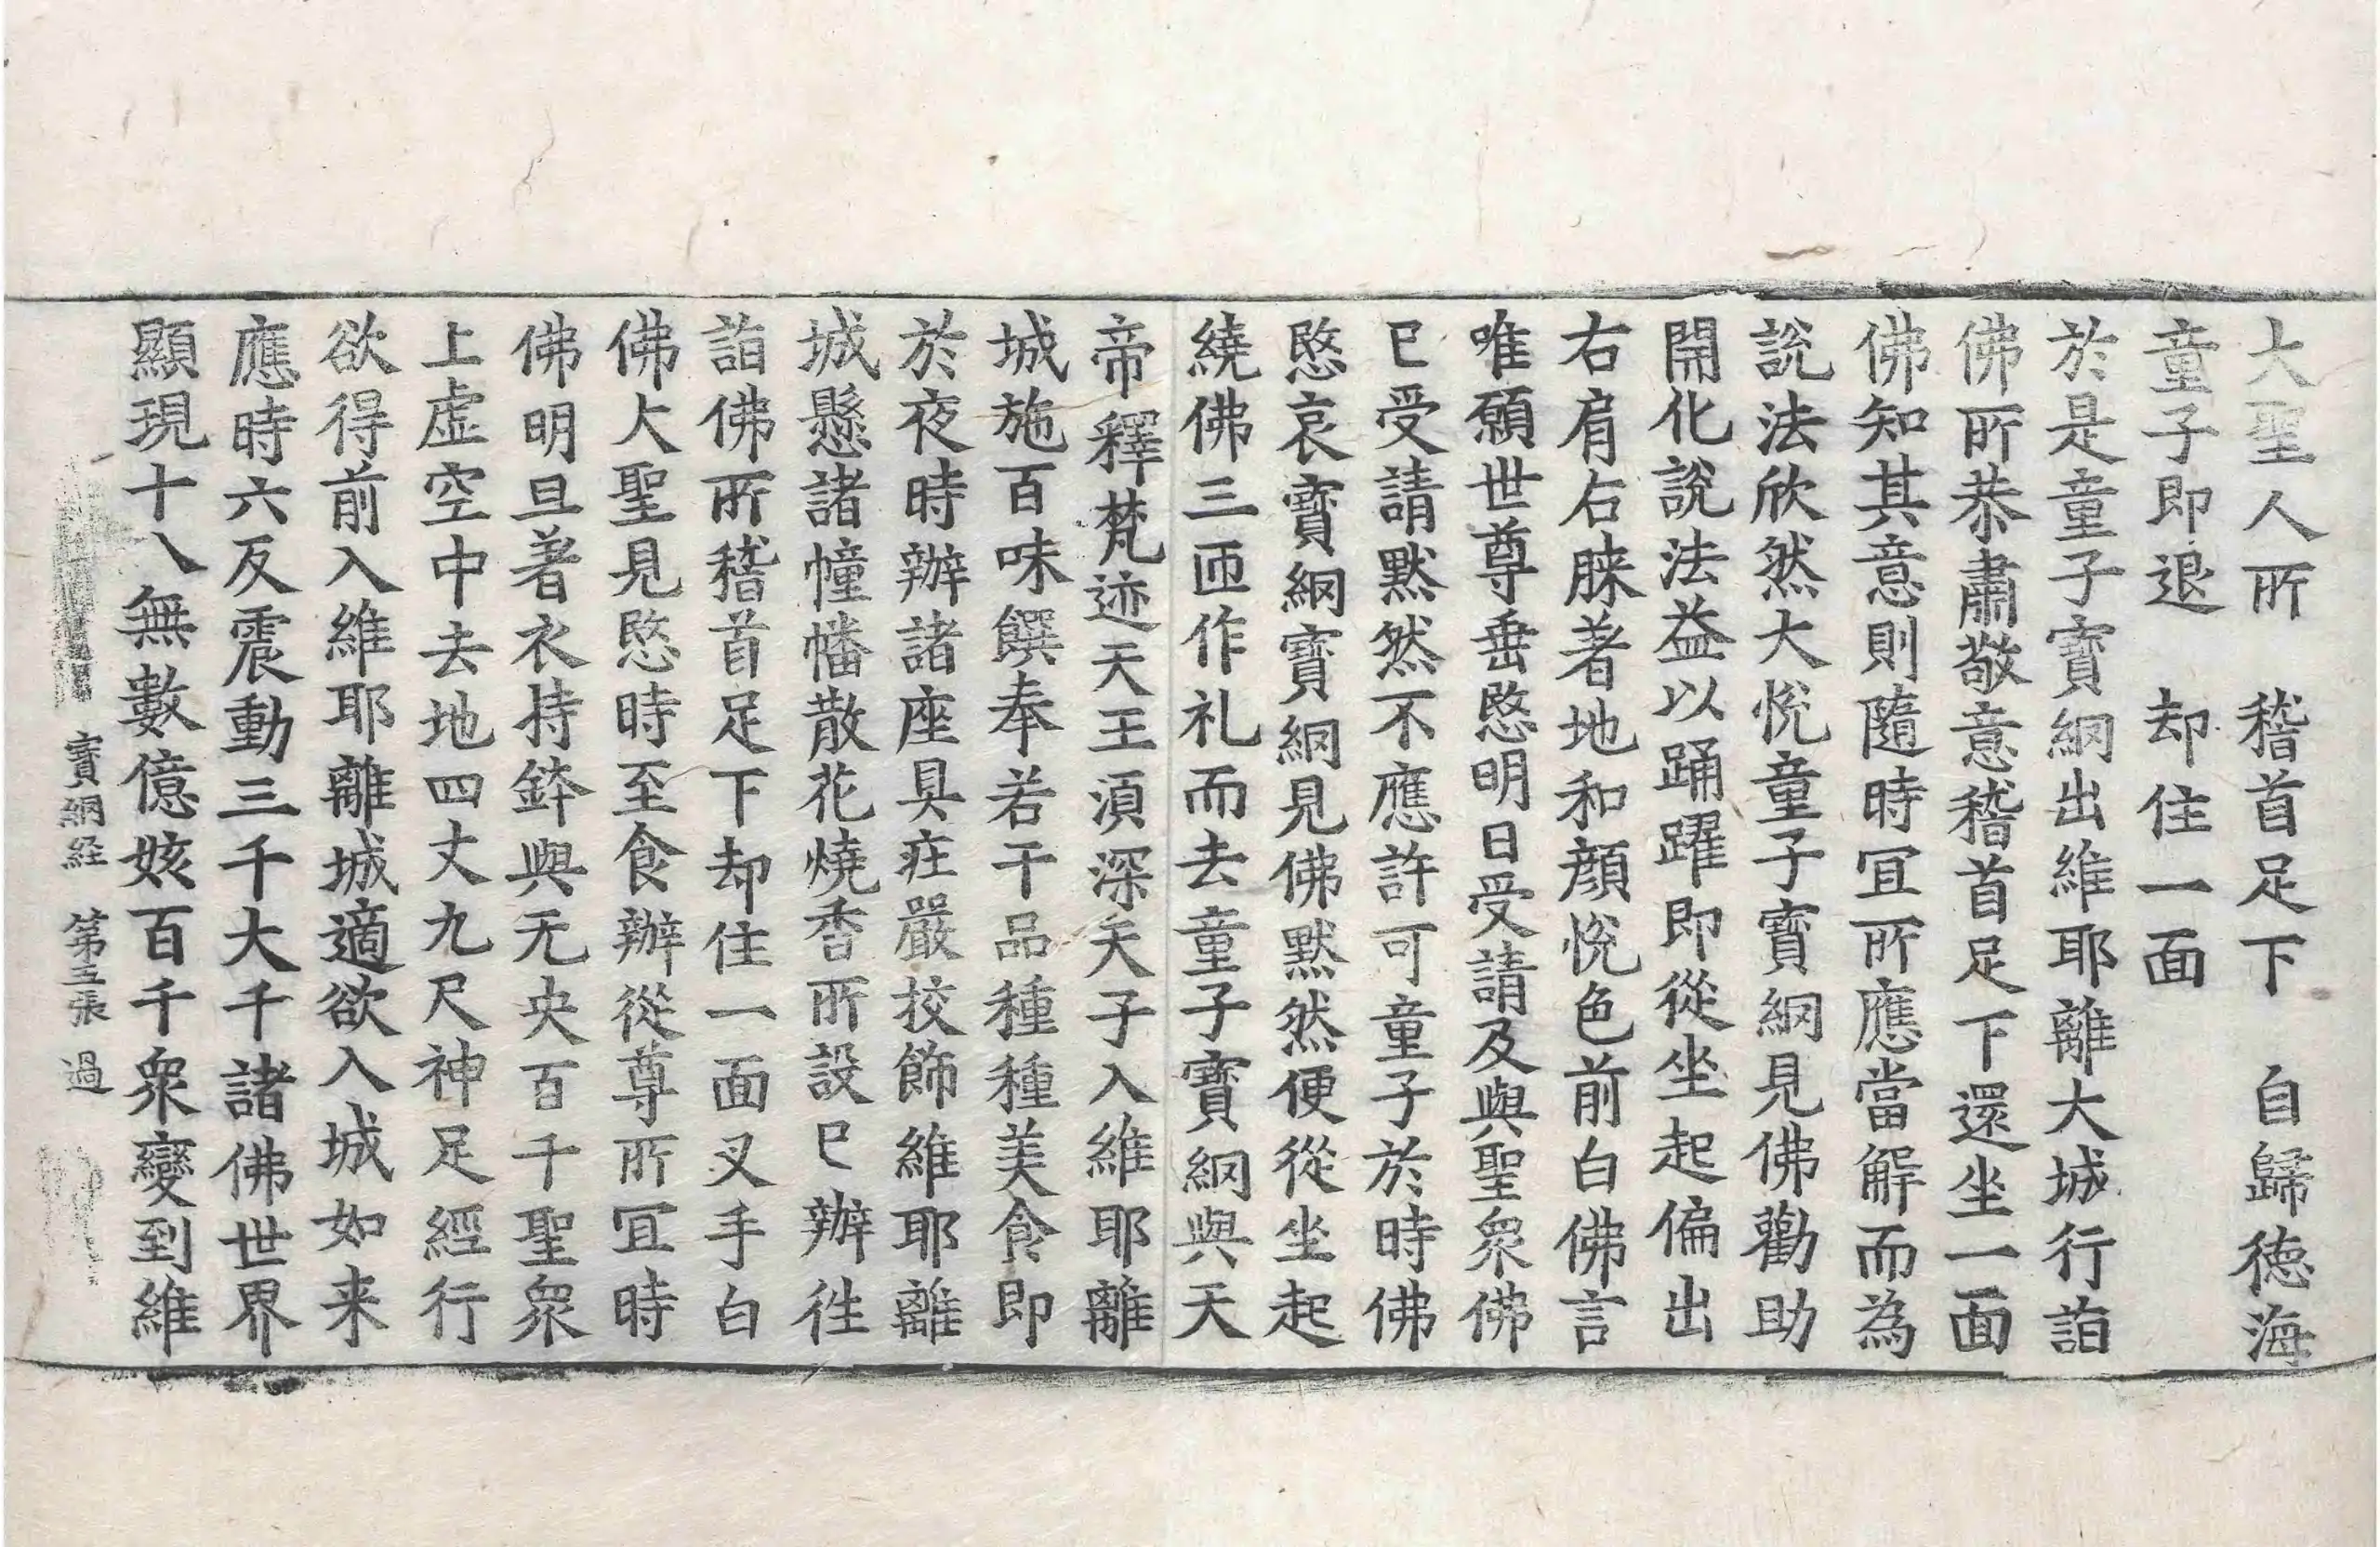 大聖人所　稽首足下　自歸德海
童子即退　却住一面
於是童子寶網出維耶離大城行詣
佛所恭肅敬意稽首足下還坐一面
佛知其意則隨時冝所應當解而為
說法欣然大悅童子寶網見佛勸助
開化說法益以踊躍即從坐起偏出
右肩右膝著地和顏悅色前白佛言
唯願世尊垂愍明日受請及與聖衆佛
已受請默然不應許可童子於時佛
愍哀寶網寶網見佛默然便從坐起
繞佛三匝作礼而去童子寶網與天
帝釋梵迹天王湏深天子入維耶離
城施百味饌奉若干品種種美食即
於夜時辦諸座具庄嚴挍飾維耶離
城懸諸幢幡散花燒香所設已辦徃
詣佛所稽首足下却住一面叉手白
佛大聖見愍時至食辦從尊所冝時
佛明旦著衣持鉢與无央百千聖衆
上虛空中去地四丈九尺神足經行
欲得前入維耶離城適欲入城如来
應時六反震動三千大千諸佛世界
顯現十八無數億姟百千衆變到維
寶網経　第三張　過